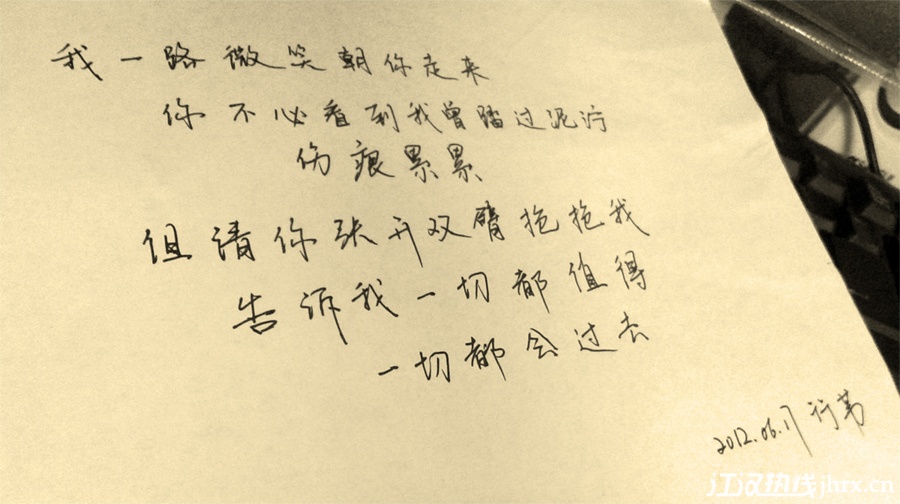 我一路微笑朝你走来
你不必看到我曾踏过泥泞
伤痕累累
但请你张开双臂抱抱我
告诉我一切都值得
一切都会过去
2012.06.17 行苇
江汉热线jhrx.cn